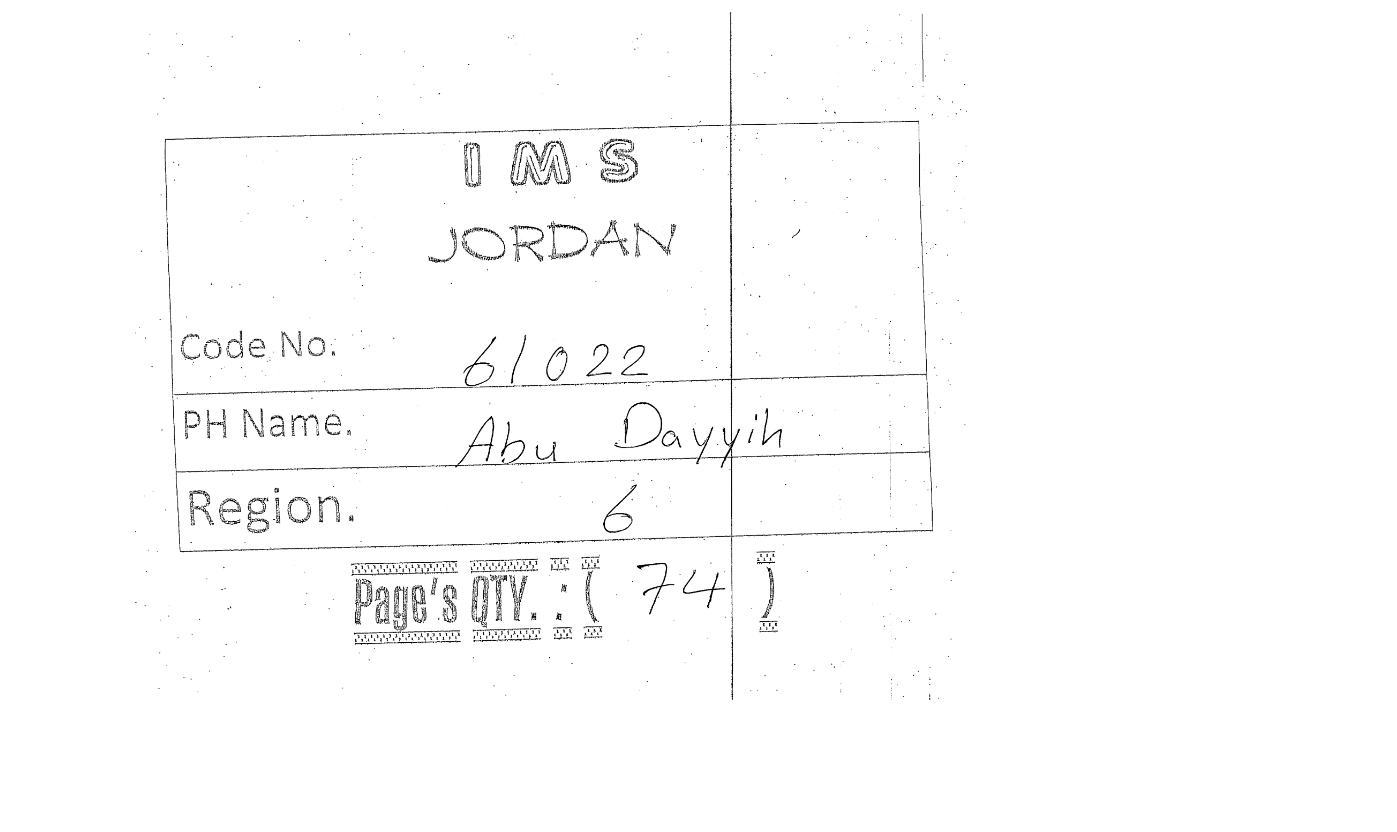 I M S
JORDAN
Code No. 61022
PH Name. Abu Dayyih
Region. 6
Page's QTY. : ( 74 )